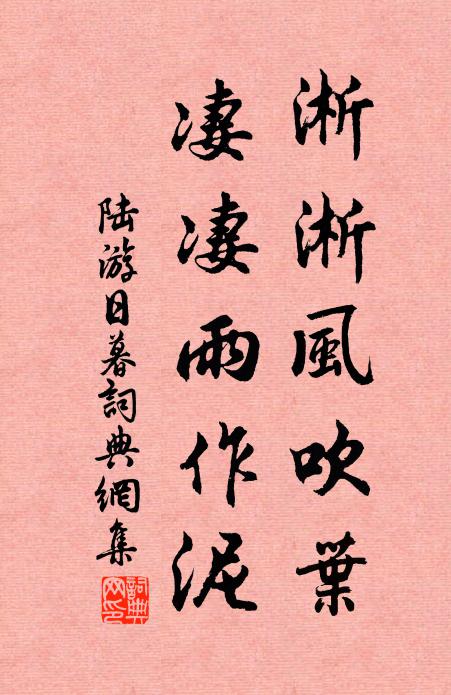 淅淅風吹葉
凄凄雨作泥
陆游日暮詞典網集
詞典网印